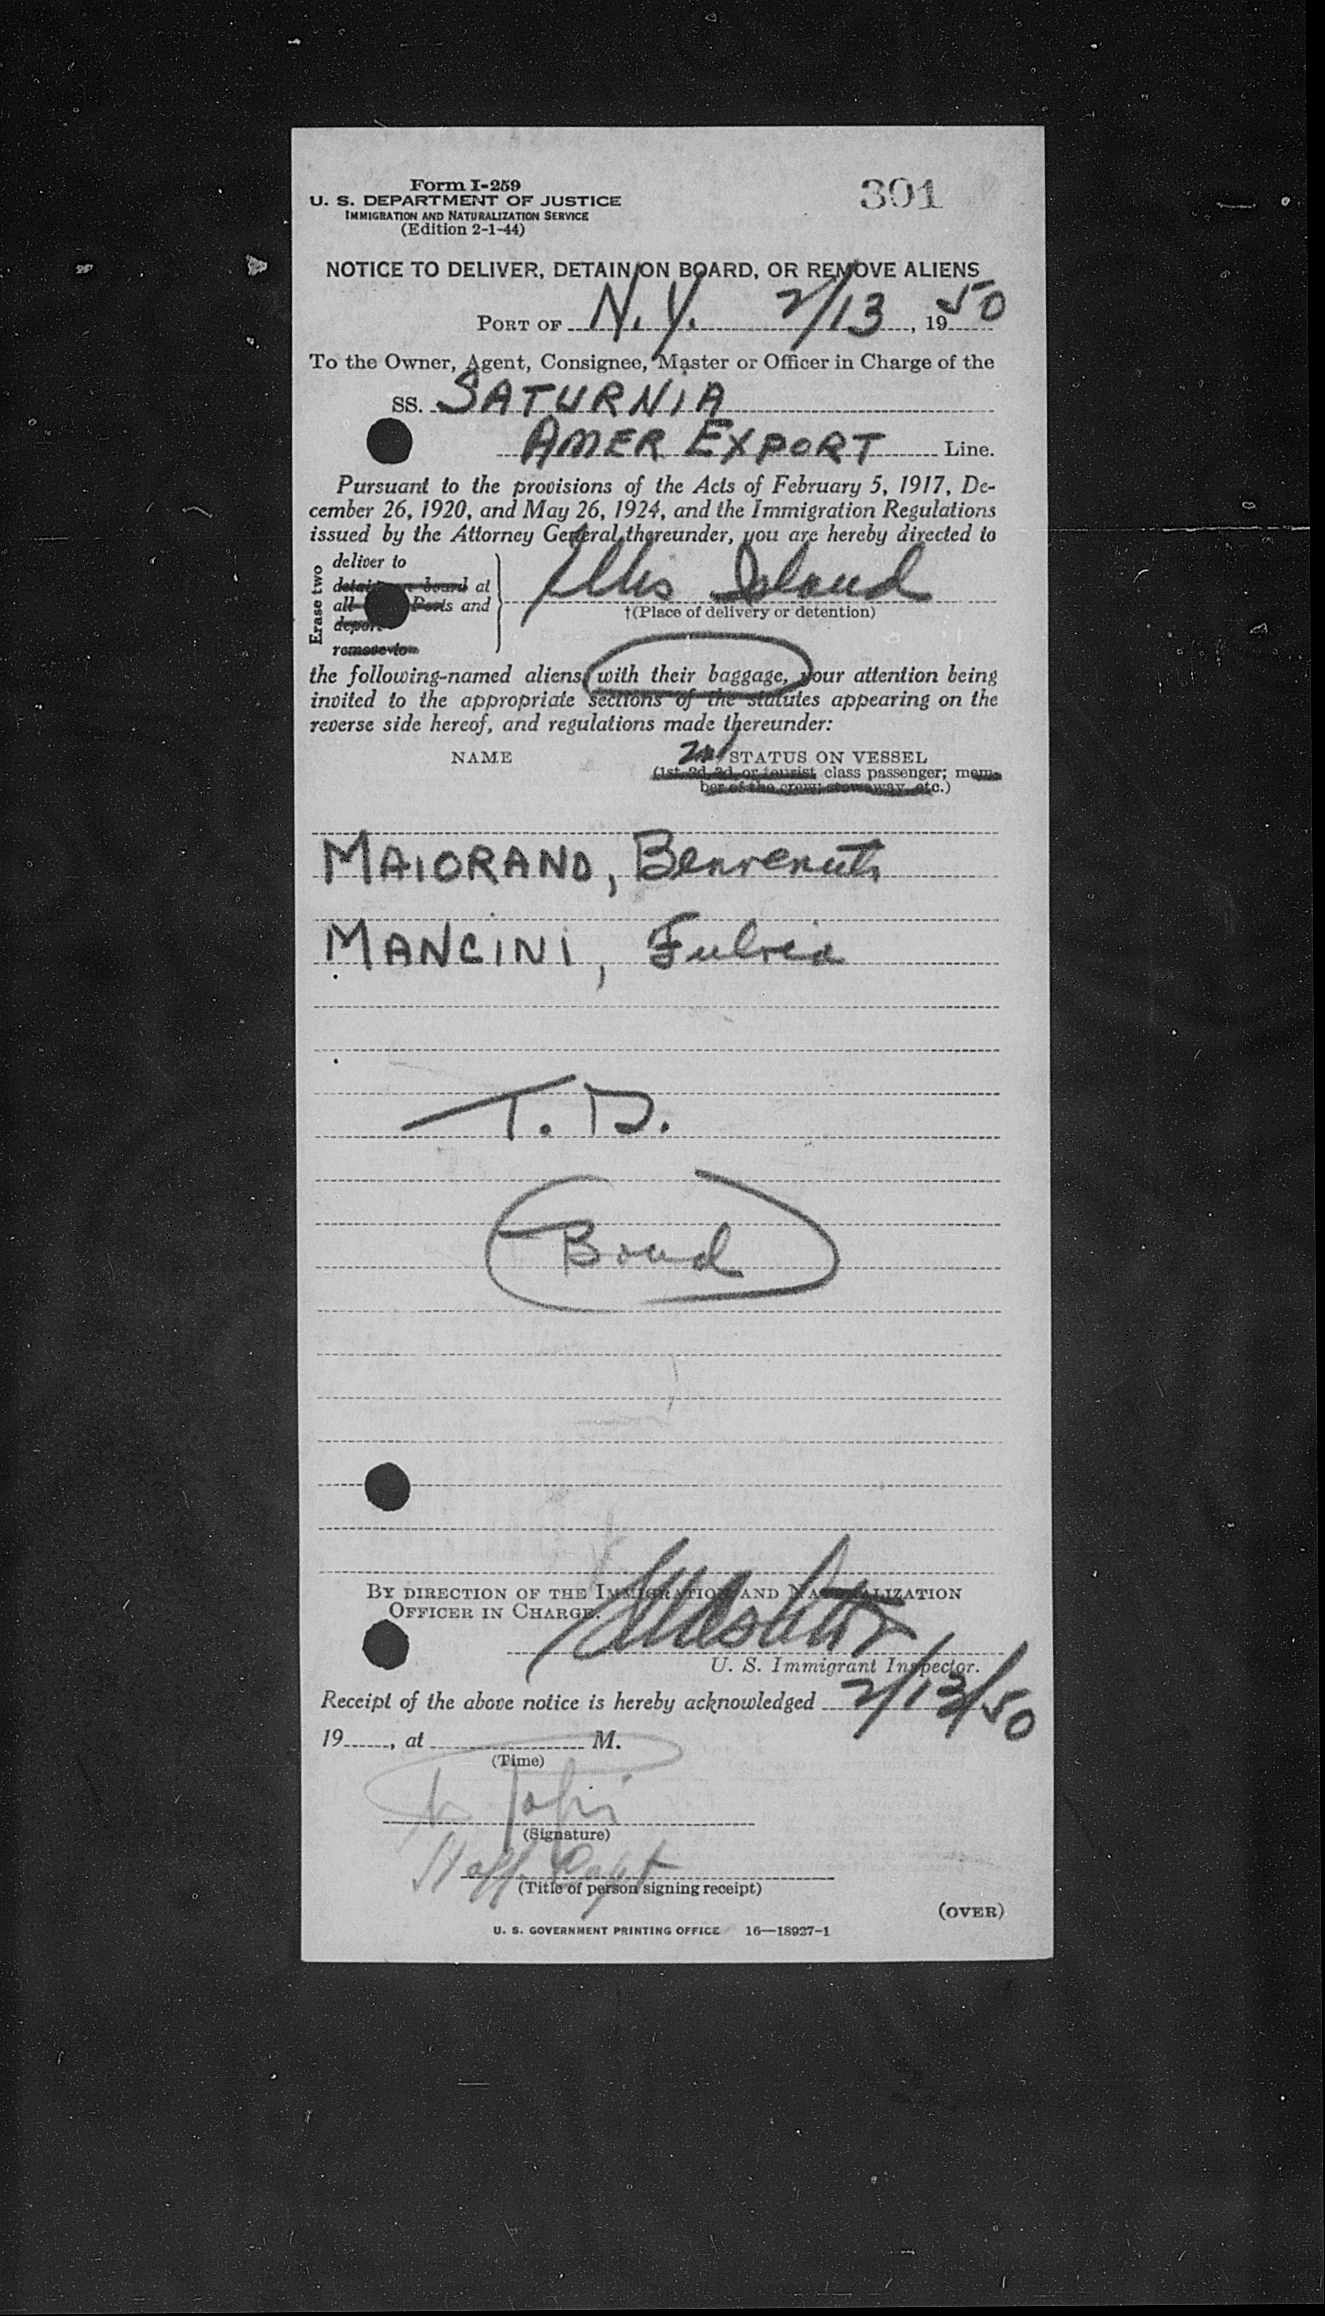 Form I-259
U. S. DEPARTMENT OF JUSTICE
IMMIGRATION AND NATURALIZATION SERVICE
(Edition 2-1-44)
301
NOTICE TO DELIVER, DETAIN ON BOARD, OR REMOVE ALIENS
PORT OF N.Y. 2/13, 1950
To the Owner, Agent, Consignee, Master or Officer in Charge of the
SS. SATURNIA
AMER EXPORT Line.
Pursuant to the provisions of the Acts of February 5, 1917, De-
cember 26, 1920, and May 26, 1924, and the Immigration Regulations
issued by the Attorney General thereunder, you are hereby directed to
Erase two
deliver to
detain on board at
all Ports and
deport
remove to
Ellis Island
†(Place of delivery or detention)
the following-named aliens, with their baggage, your attention being
invited to the appropriate sections of the statutes appearing on the
reverse side hereof, and regulations made thereunder:
NAME
STATUS ON VESSEL
(1st, 2d, 3d, or tourist class passenger; mem-
ber of the crew; stowaway, etc.)
MAIORANO, Benvenuto
MANCINI, Fulvia
T. D.
Board
BY DIRECTION OF THE IMMIGRATION AND NATURALIZATION
OFFICER IN CHARGE.
U. S. Immigrant Inspector.
Receipt of the above notice is hereby acknowledged 2/13/50
19, at M.
(Time)
(Signature)
Staff Capt
(Title of person signing receipt)
(OVER)
U. S. GOVERNMENT PRINTING OFFICE 16—18927-1